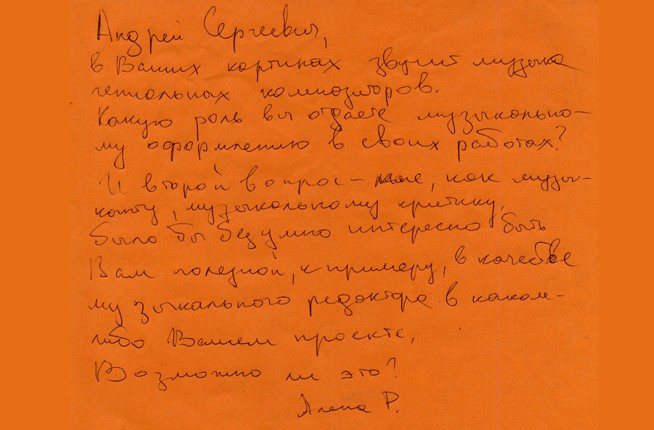 Андрей Сергеевич,
в Ваших картинах звучит музыка
гениальных композиторов.
Какую роль вы отдаете музыкально-
му оформлению в своих работах?
И второй вопрос – мне, как музы-
канту, музыкальному критику,
было бы безумно интересно быть
Вам полезной, к примеру, в качестве
музыкального редактора в каком-
либо Вашем проекте.
Возможно ли это?
Алена Р.